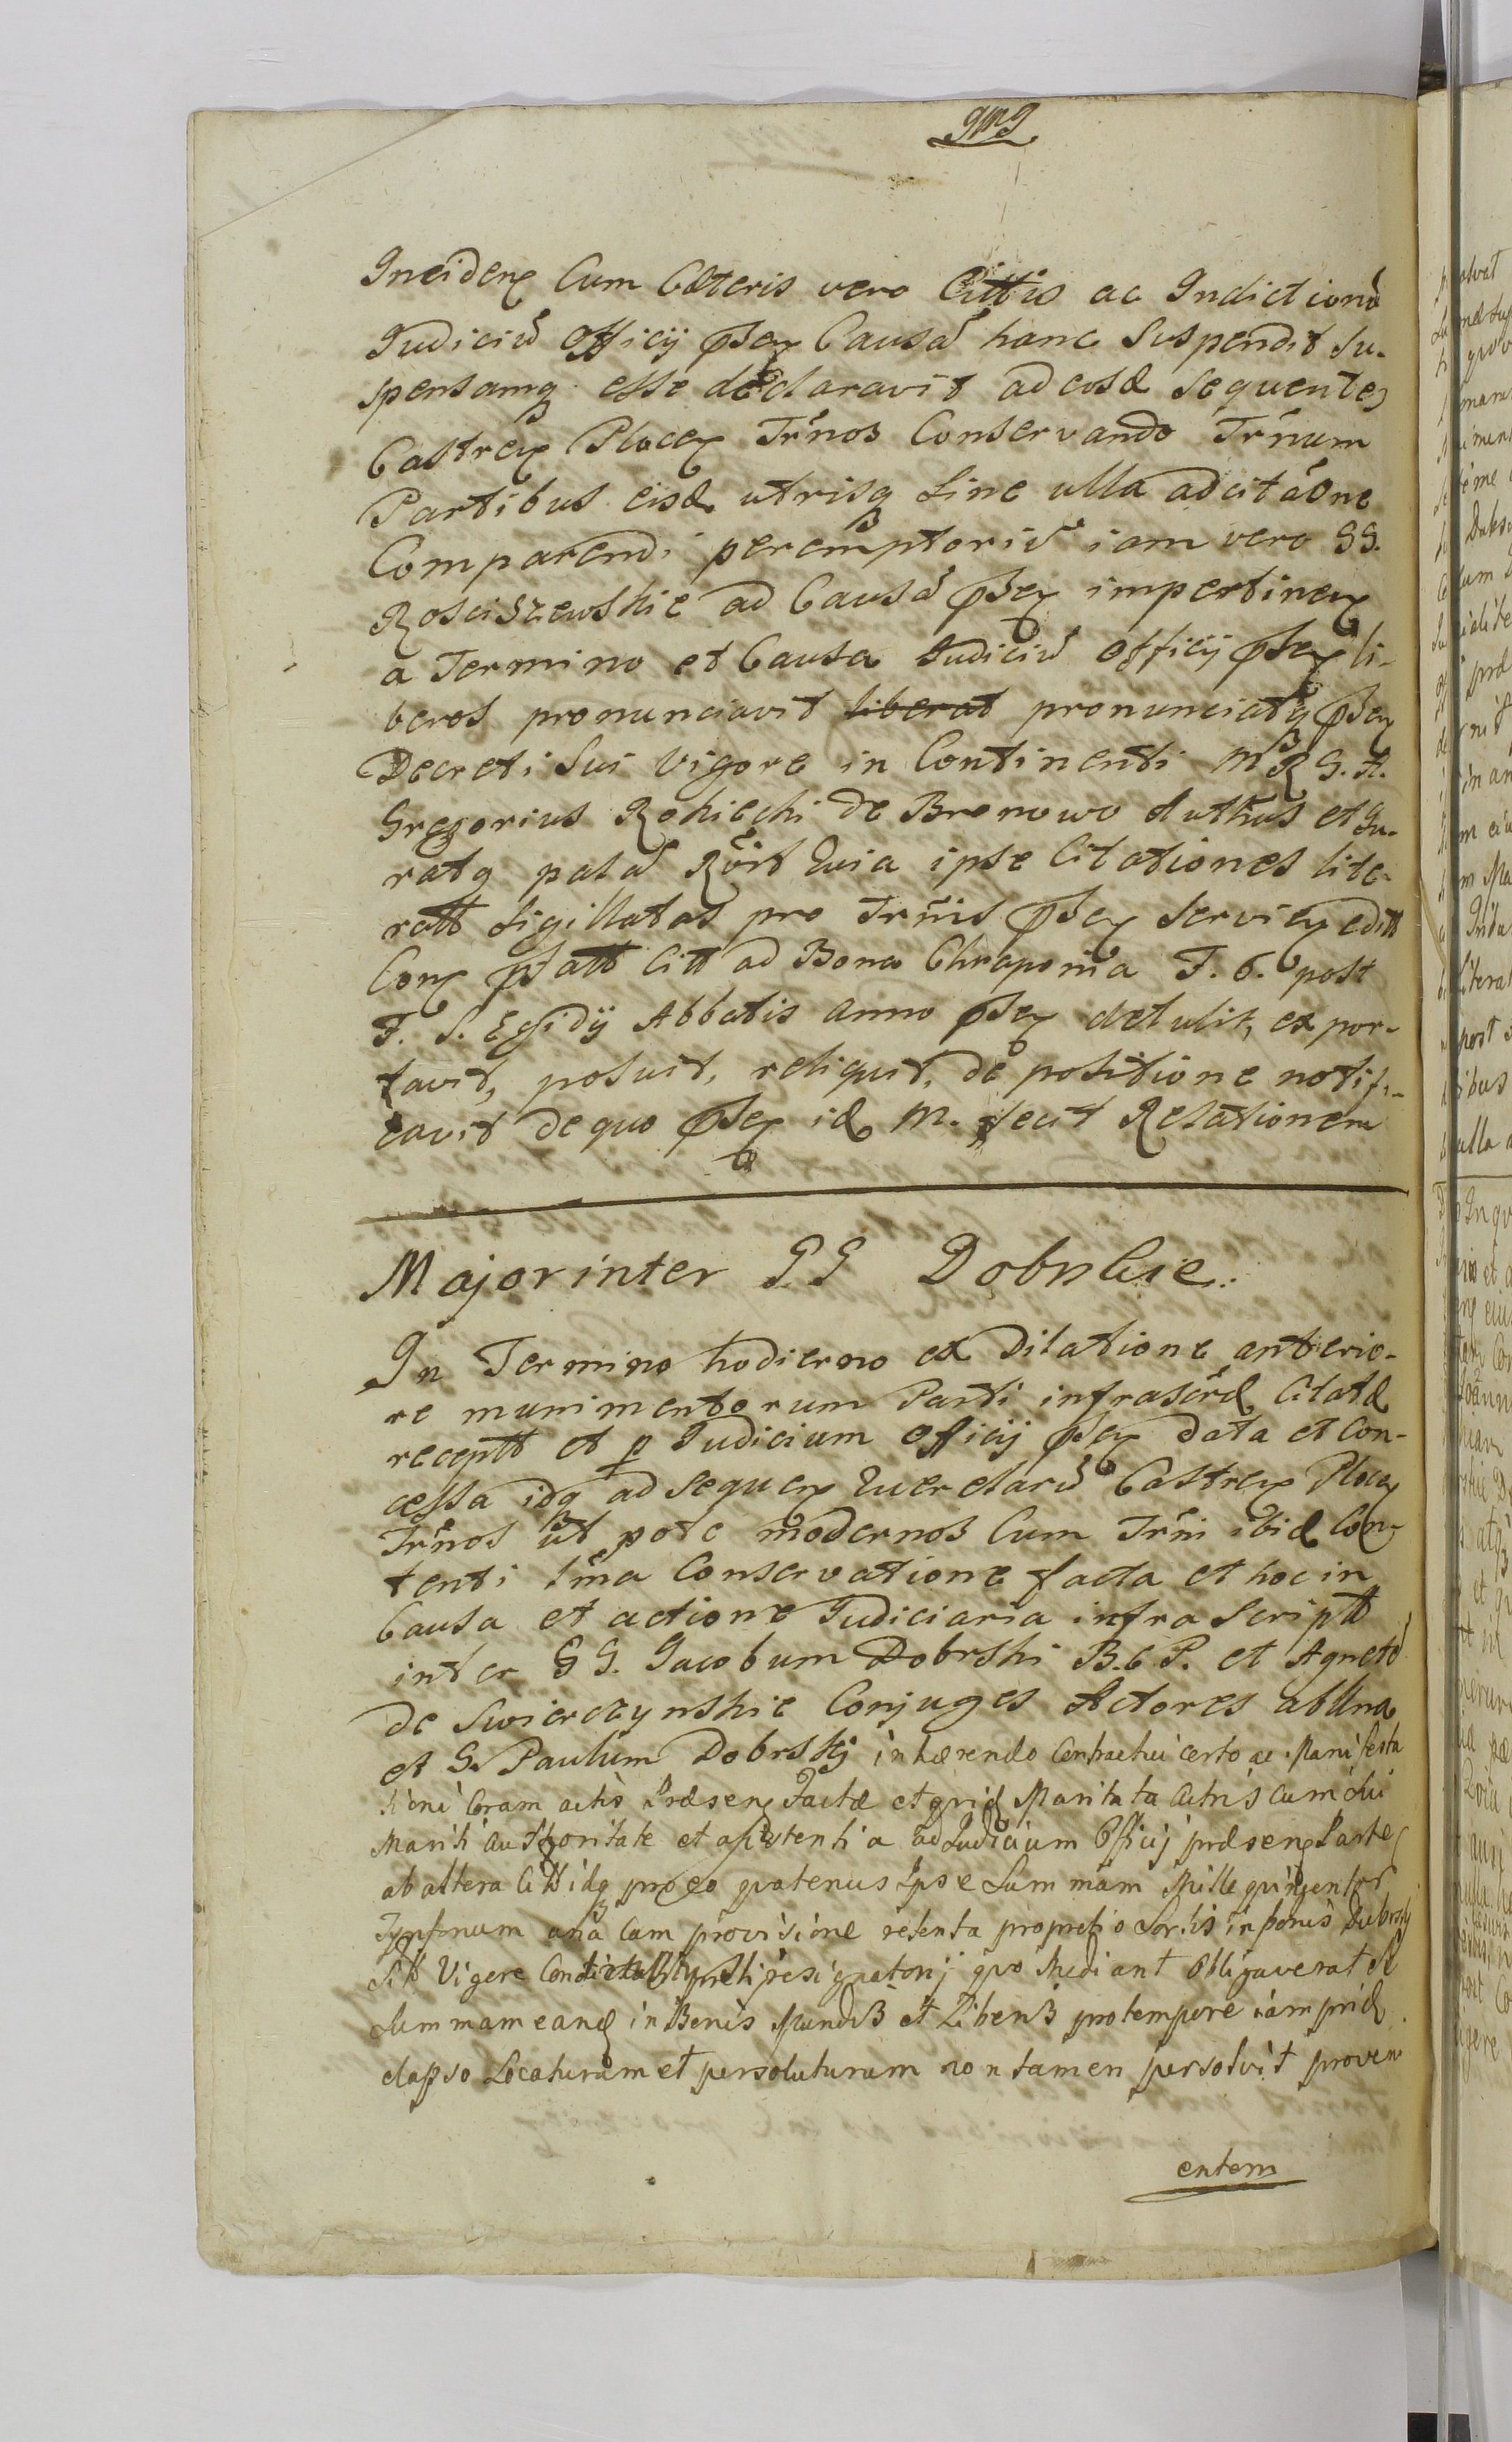 Inciden Cum Cæteris vero Cittis ac Indictionē
Judiciū Officij pñsen Causā hanc Suspendit Su-
spensamq esse declaravit ad eosd sequentes
Castren Plocen Trños Conservando Trñum
Partibus eisd utrisq Sine ulla adcitãone
Comparendi peremptoriū iam vero GG.
Rosciszewskie ad Causā pñsen impertinen
a Termino et Causa Judiciū Officij pñsen li-
beros pronunciavit liberat pronunciatq pñsen
Decreti Sui Vigore in Continenti MR G. A.
Gregorius Rokicki de Bronowo Authus et Ju-
ratq palā Rõit Quia ipse Citationes lite-
ratt Sigillatas pro Trñis pñsen Servien editt
Con pñatt Citt ad Bona Chraponia F. 6. post
F. S. Egidij Abbatis Anno pñsen detulit, expor-
tavit, posuit, reliquit, de positione notifi-
cavit de quo pñsen id M. fecit Relationem
Major inter GG Dobrskie.
In Termino hodierno ex Dilatione anterio-
re munimentorum Parti infrascrd Citatæ
receptt et p Judicium Officij pñsen data et Con-
cessa idq ad sequen Querelarū Castren Plocen
Trños ut pote modernos Cum Trñi ibid Con-
tenti sma Conservatione facta et hoc in
Causa et actione Judiciaria infra Scriptt
inter GG. Jacobum Dobrski B. C P. et Agnetē
de Swierczynskie Conjuges Actores ab Una
et G. Paulum Dobrskij inhærendo Contractui certo ac Manifesta
tioni Coram actis Præsen Factæ et Maritata Actris cum Sui
Mariti Authoritate et assistentia ad Judicium Officij præsen Partes
ab altera Citt idq pro eo quatenus Ipse Summam Mille quingentos
Tynfonum una Cum provisione retenta pro pretio Sortis in bonis Dobrsky
Sitt Vigore resignatorij quo Mediant Obligaverat Se
Summam eand in Bonis Mundis et Liberis pro tempore iam prid
elapso Locaturum et persoluturum non tamen persolvit proven
entem